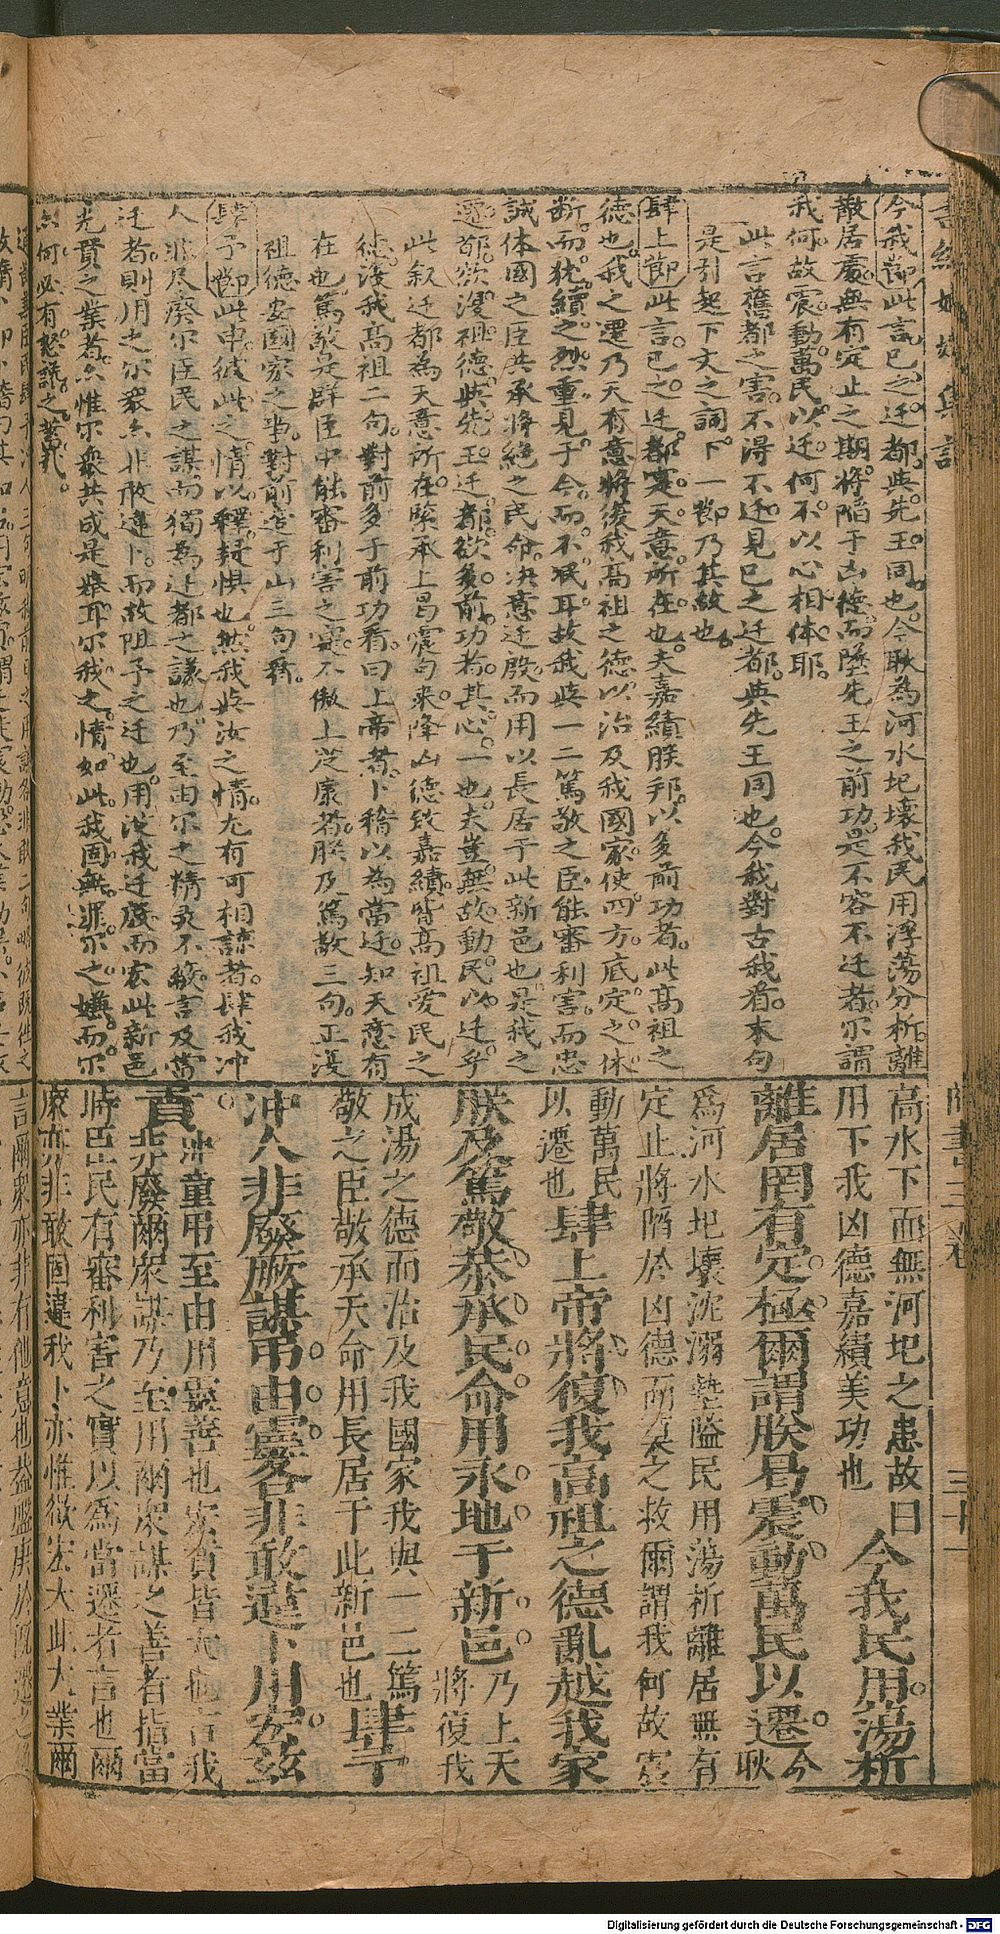 今我節此言己之迁都與先王同也今耿為河水圮壊我民用浮蕩分析離
散居處無有定止之期將陷于凶德而墜先王之前功是不容不迁者尓謂
我何故震動萬民以迁何不以心相体耶
此言舊都之害不得不迁見己之迁都與先王同也今我對古我看末句
是引起下文之詞下一節乃其故也
肆上節此言己之迁都寔天意所在也夫嘉績朕邦以多前功者此高祖之
德也我之遷乃天有意將復我高祖之德以治及我國家使四方底定之休
断而犹續之烈重見于今而不泯耳故我與一二篤敬之臣能審利害而忠
誠体國之臣共承將絕之民命决意迁殷而用以長居于此新邑也是我之
遷都欲復祖德與先王迁都欲多前功者其心一也夫豈無故動民以迁乎
此叙迁都為天意所在緊承上曷震句来降凶德致嘉績皆高祖愛民之
德復我高祖二句對前多于前功看曰上帝者卜稽以為當迁知天意有
在也篤敬是群臣中能審利害之寔不傲上從康者朕及篤敬三句正復
祖德安國家之事對前適于山三句看
肆予節此申彼此之情以釋疑惧也然我與汝之情尤有可相諒者肆我冲
人非尽廢尓臣民之謀而獨為迁都之議也乃至由尓之精灵不
迁者則用之尓眾亦非敢違卜而故阻予之迁也用汝我迁殷而宏此新邑
光賁之業者亦惟尓眾共成是舉耳尓我之情如此我固無罪尓之嫌而尓
亦何必有怒誹之舊哉
高水下而無河圮之患故曰
用下我凶德嘉績美功也
今我民用蕩析
離居罔有定極爾謂朕曷震動萬民以遷
今耿
為河水圮壞沈溺墊隘民用蕩析離居無有
定止將陷於凶德而莫之救爾謂我何故震
動萬民
以遷也
肆上帝將復我高祖之德亂越我家
朕及篤敬恭承民命用永地于新邑
乃上天
將復我
成湯之德而治及我國家我與一二篤
敬之臣敬承天命用長居于此新邑也
肆予
冲人非廢厥謀弔由靈各非敢違卜用宏茲
賁
冲童弔至由用靈善也宏賁皆大也言我
非廢爾眾謀乃至用爾眾謀之善者指當
時臣民有審利害之實以為當遷者言也爾
眾亦非敢固違我卜亦惟欲宏大此大業爾
Digitalisierung gefördert durch die Deutsche Forschungsgemeinschaft - DFG